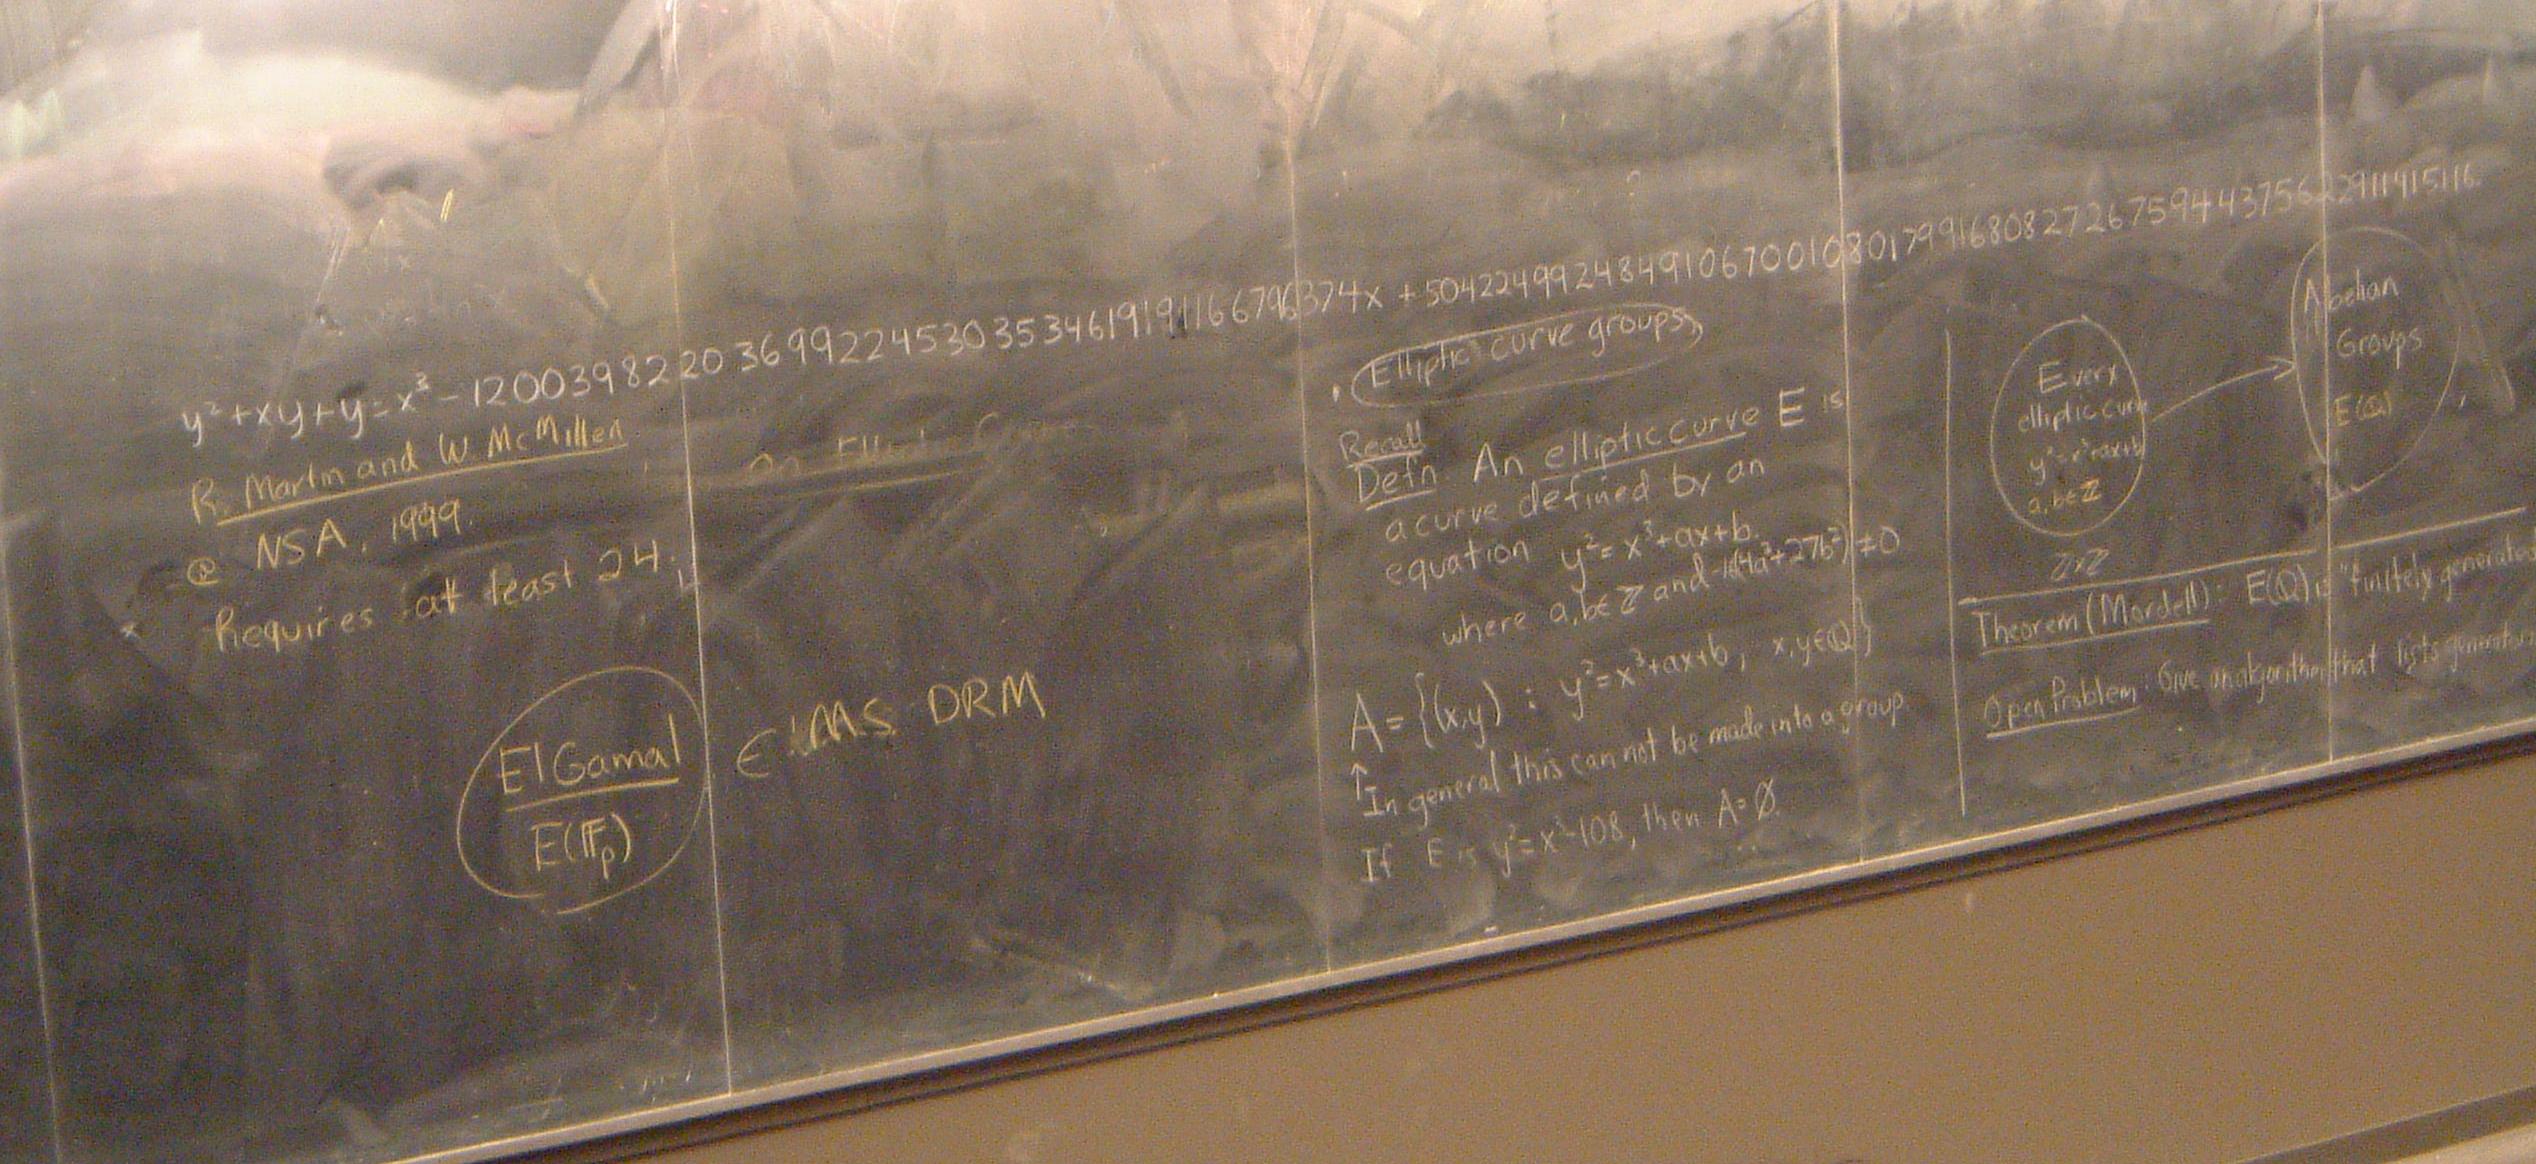 y²+xy+y=x³-120039822036992245303534619191166796374x + 504224992484910670010801799168082726759443756222911415116
R. Martin and W McMillen
@ NSA, 1999.
Requires at least 24.
El Gamal
E(𝔽p)
∈ MS DRM
Elliptic curve groups
Recall
Defn. An elliptic curve E is
a curve defined by an
equation y²=x³+ax+b.
where a,b∈ℤ and -16(4a³+27b²)≠0
A={(x,y) : y²=x³+ax+b, x,y∈ℚ}
↑In general this can not be made into a group.
If E is y²=x³-108, then A=∅.
Every
elliptic curve
y²=x³+ax+b
a,b∈ℤ
Abelian
Groups
E(ℚ)
ℤ×ℤ
Theorem (Mordell): E(ℚ) is "finitely generated
Open Problem: Give an algorithm that lists generators